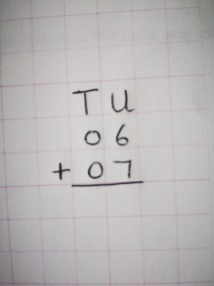 T U
0 6
+ 0 7